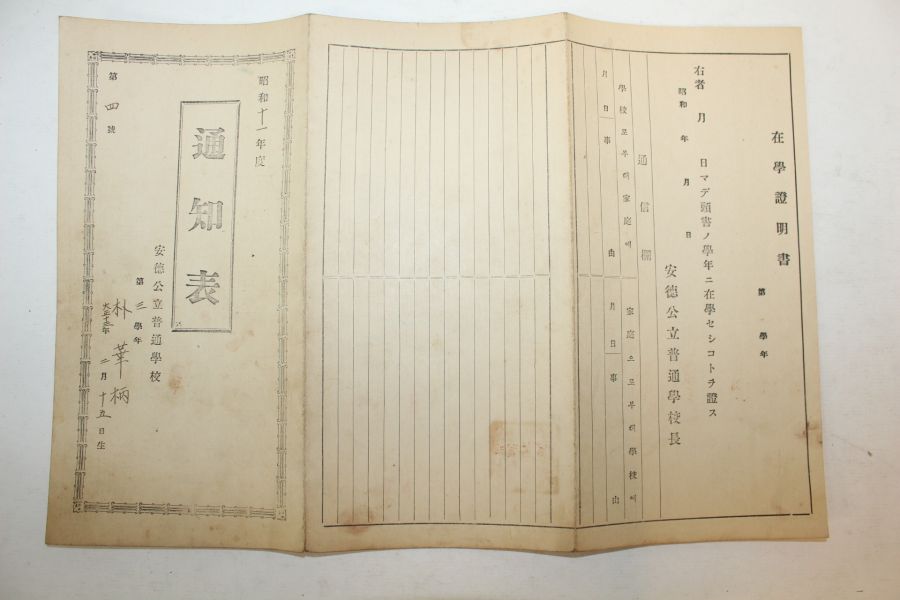 在學證明書
第 學年
右者 月 日マデ頭書ノ學年ニ在學セシコトヲ證ス
昭和 年 月 日
安德公立普通學校長
通信欄
學校으로부터家庭에
家庭으로부터學校에
月日 事由
月日 事由
昭和十一年度
通知表
安德公立普通學校
第三學年
朴華柄
大正十三年二月十五日生
第四號